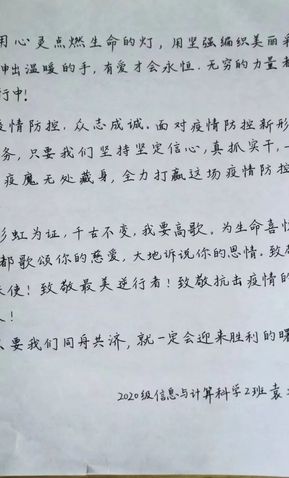 用心灵点燃生命的灯，用坚强编织美丽
伸出温暖的手，有爱才会永恒．无穷的力量都
行中！
疫情防控．众志成诚．面对疫情防控新形
务，只要我们坚持坚定信心，真抓实干，
疫魔无处藏身，全力打赢这场疫情防控
彩虹为证，千古不变，我要高歌．为生命喜悦
都歌颂你的慈爱，大地诉说你的恩情．致敬
天使！致敬最美逆行者！致敬抗击疫情的
人！
要我们同舟共济，就一定会迎来胜利的曙
2020级信息与计算科学2班袁